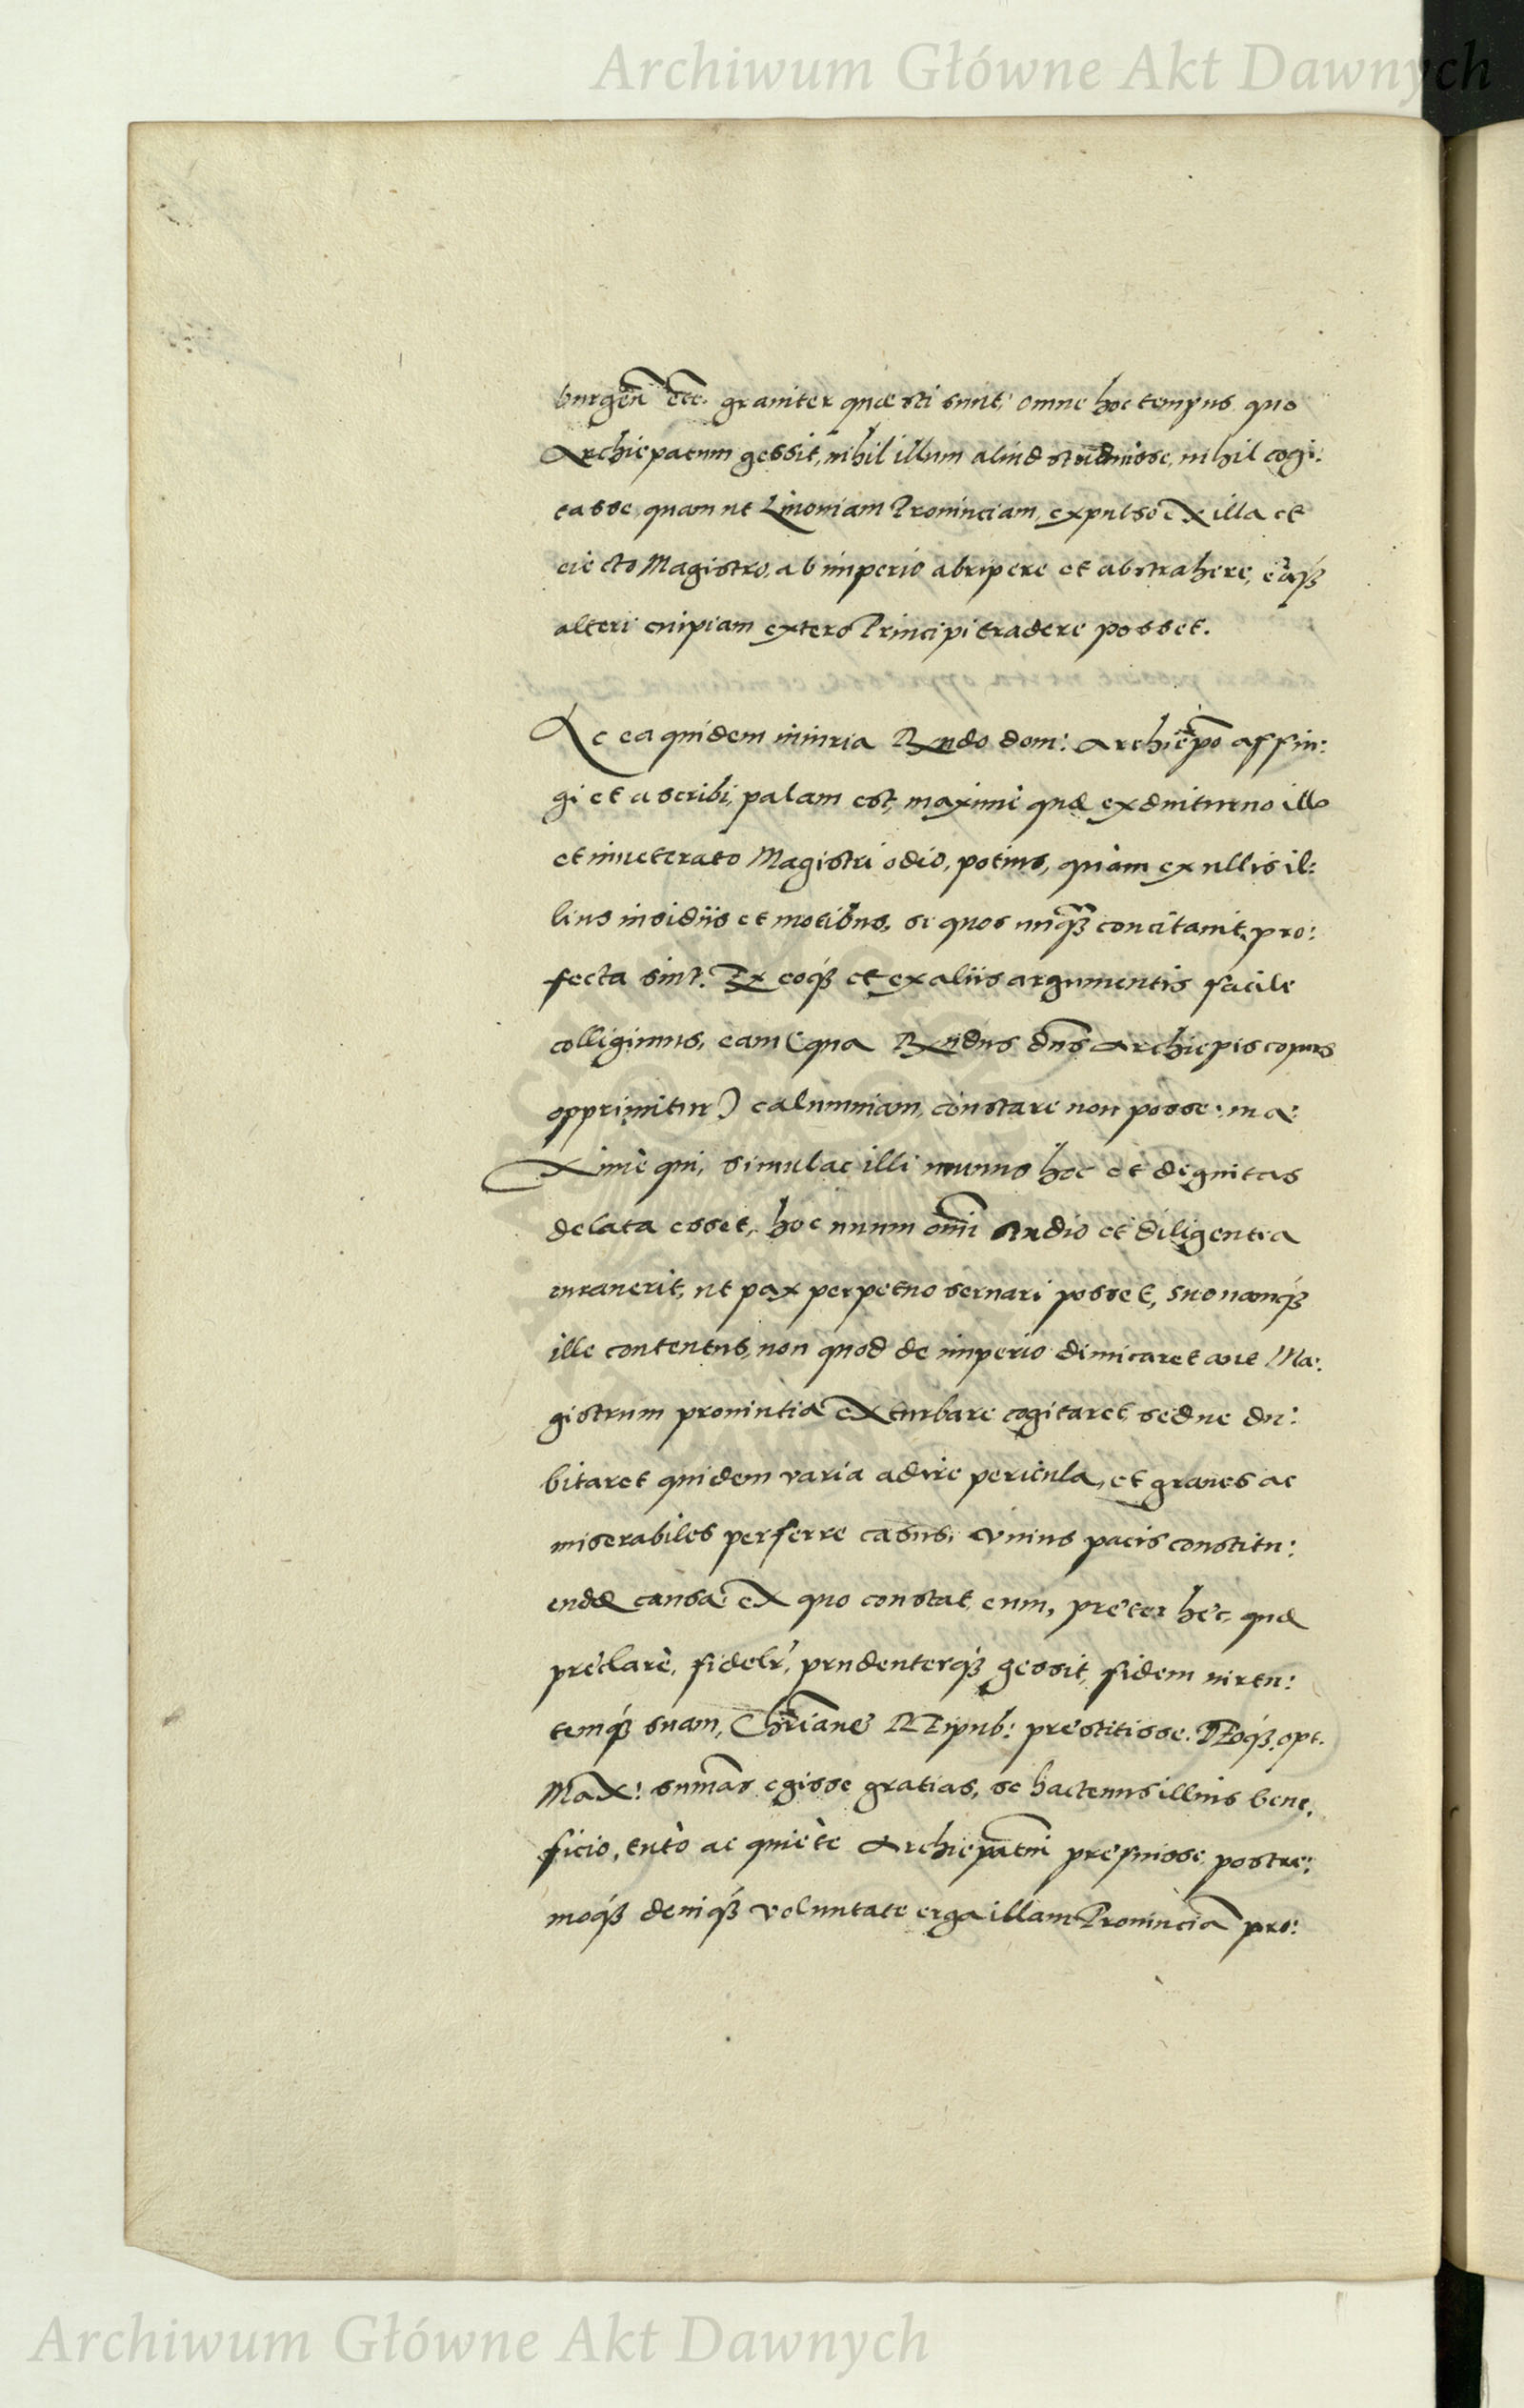 Archiwum Główne Akt Dawnych
burgeñ etc. grauiter quaesti sunt, omne hoc tempus quo
Archiepatum gessit, nihil illum aliud studuisse, nihil cogi:
tasse, quam ut Liuoniam Prouinciam, expulso ex illa et
eiecto Magistro, ab imperio abripere et abstrahere, eāq3
alteri cuipiam extero Principi tradere posset.
Ac ea quidem iniuria Rndo dom: Archiēpō affin:
gi et ascribi, palam est, maximè quæ ex diuturno illo
et inueterato Magistri odio, potius, quàm ex ullis il:
lius insidiis et motibus, si quos unq̄3 concitauit, pro:
fecta sint. Ex eoq3 et ex aliis argumentis facile
colligimus, eam (qua Rndus dns Archiepiscopus
opprimitur) calumniam, constare non posse: ma:
ximè qui, simulac illi munus hoc et dignitas
delata esset, hoc unum omī studio et diligentia
curauerit, ut pax perpetuo seruari posset, suo namq3
ille contentus, non quod de imperio dimicaret aut Ma:
gistrum prouintia exturbare cogitaret, sed ne du:
bitaret quidem varia adire pericula, et graues ac
miserabiles perferre casus, vnius pacis constitu:
endæ causa: ex quo constat, eum, preter hec, quæ
preclarè, fidelr, prudenterq3 gessit, fidem uirtu:
temq3 suam, Chr̄iane REipub: prestitisse. DEoq3. opt.
Max: summas egisse gratias, se hactenus illius bene:
ficio, tutò ac quiète Archiepatui prefuisse, postre:
moq3 deniq3 voluntate erga illam Prouinciā pro:
Archiwum Główne Akt Dawnych